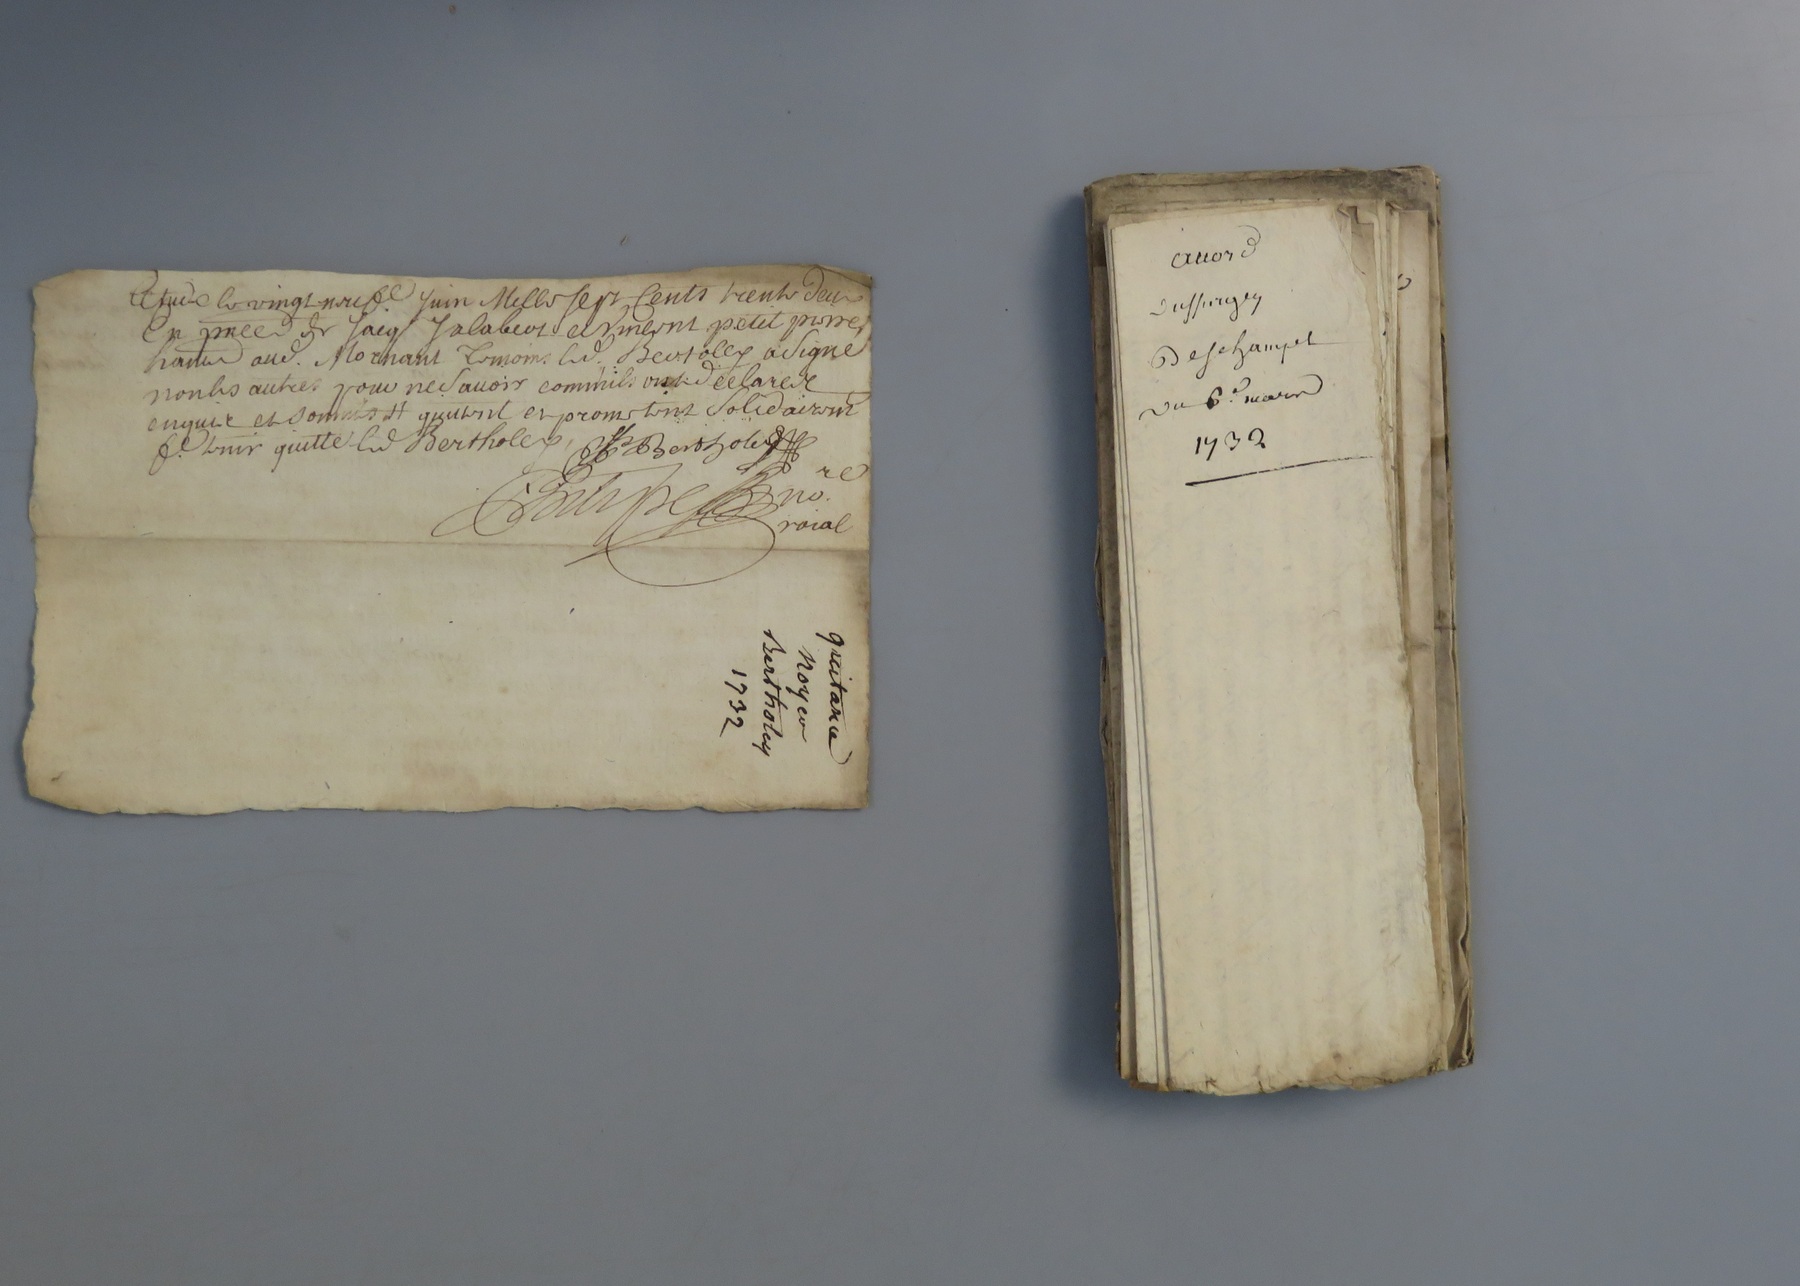 le vingt neuf.e Juin Mille sept Cents trente deux
En pnce de Jacq. Jalabert et Vincent petit pierre
aud. Mornant Temoins led. Bertolley a signé
non les autres pour ne savoir comm'ils ont declaré de
enquis et sommés quittent et promettent solidairemt
f.e tenir quitte led Bertholey,
Bertholey
no.re
roial
quitance
noyer
Bertholey
1732
accord
Dussurgey
Deschampet
du 6.e mars
1732